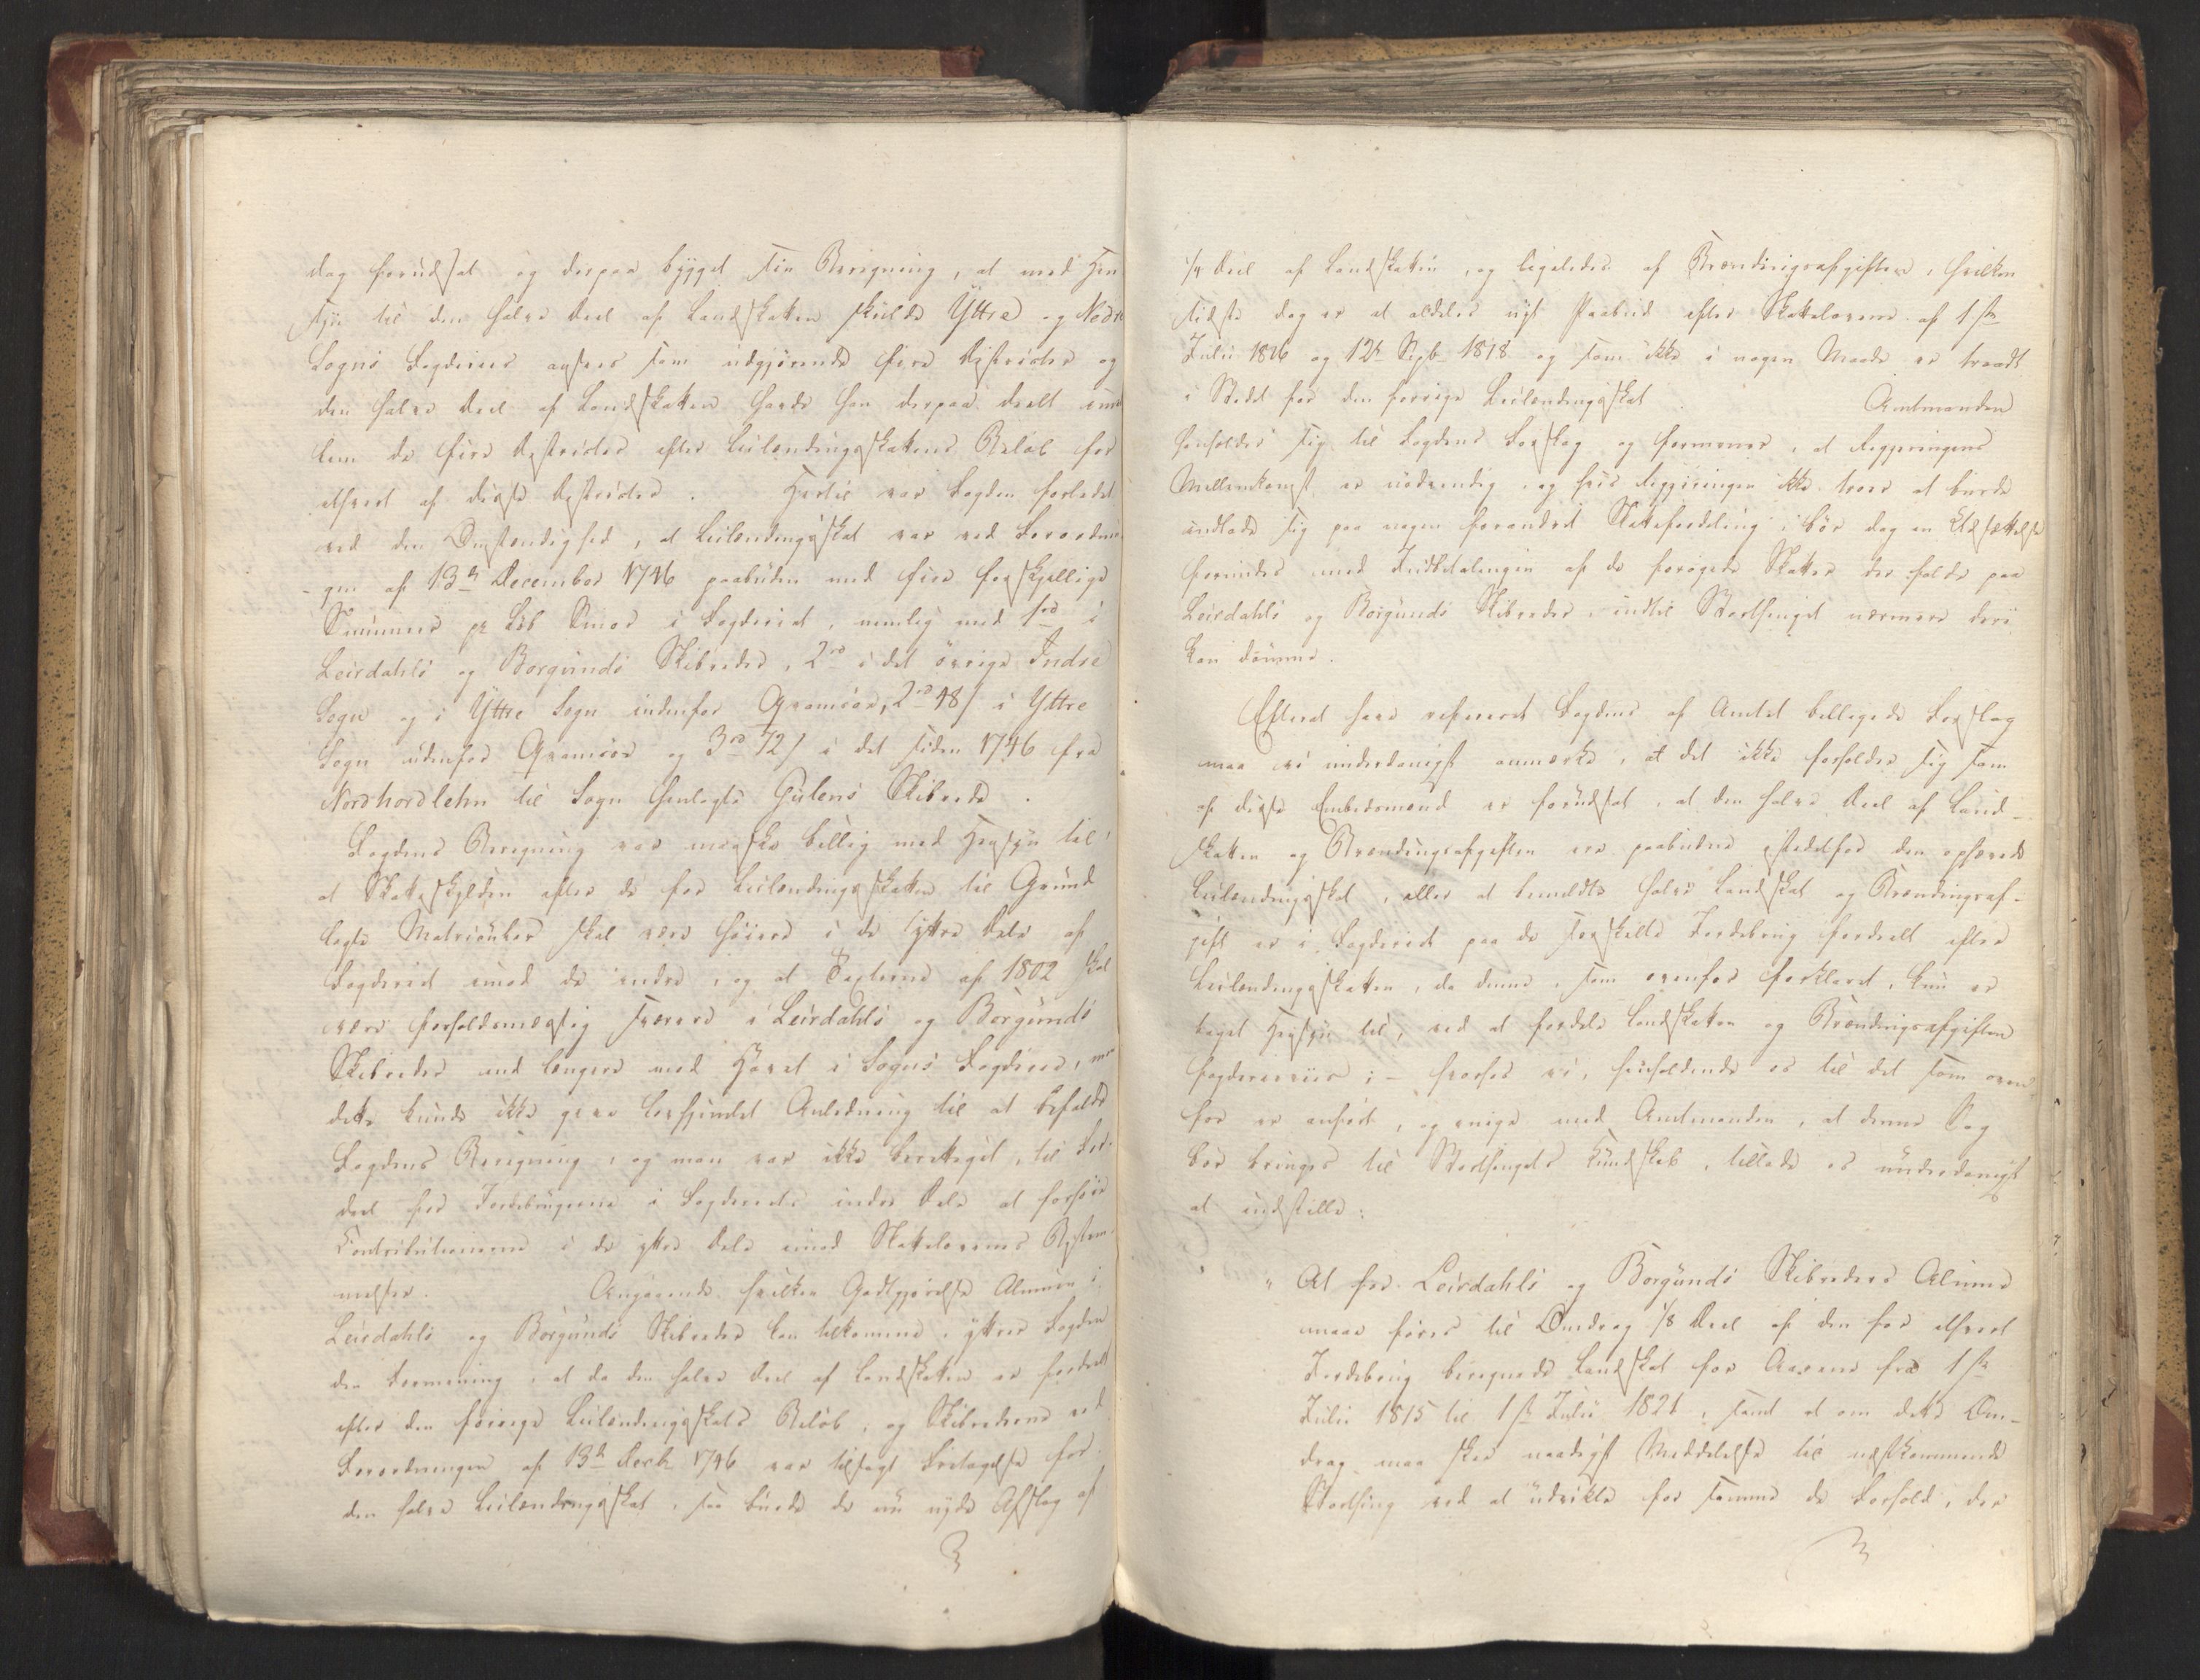 dog forudsat og derpaa bygget sin Beregning, at med Hen
syn til den halve Deel af Landskatten skulde Yttre og Nedre
Sogns Fogderier ansees som udgjørende fire Districter og
den halve Deel af Landskatten havde han derpaa deelt imel
lem de fire Districter efter Leilændingsskattens Beløb for
ethvert af disse Districter. Hertil var Fogden forledet
ved den Omstændighed, at Leilændingsskat var ved Forordnin
gen af 13de December 1746 paabuden med fire forskjellige
Summer pr Løb Smør i Fogderiet, nemlig med 1rd i
Leirdahls og Borgunds Skibreder, 2rd i det øvrige Indre
Sogn og i Yttre Sogn indenfor Qvamsøe, 2rd 48 s i Yttre
Sogn udenfor Qvamsøe og 3rd 72 s i det siden 1746 fra
Nordhordlehn til Sogn henlagte Gulens Skibrede.
Fogdens Beregning var maaske billig med Hensyn til
at Skatteskylden efter de for Leilændingsskatten til Grund
lagte Matriculer skal være høiere i de yttre Dele af
Fogderiet imod de indre, og at Taxterne af 1802 skal
være forholdsmæssig sværere i Leirdahls og Borgunds
Skibreder end længere mod Havet i Sogns Fogderie, men
dette kunde ikke give lovhjemlet Anledning til at befalde
Fogdens Beregning, og man var ikke berettiget, til For-
deel for Jordbrugerne i Fogderiets indre Dele at forhøie
Contributionerne i de yttre Dele imod Skattelovens Bestem-
melser. Angaaende hvilken Godtgjørelse Almuen i
Leirdahls og Borgunds Skibreder kan tilkomme, yttrer Fogden
den Formening, at da den halve Deel af Landskatten er fordeelt
efter den forrige Leilændingsskats Beløb, og Skibrederne ved
Forordningen af 13de Decbr 1746 var tilsagt Fritagelse for
den halve Leilændingsskat, saa burde de nu nyde Afslag af
1/4 Deel af Landskatten, og ligeledes af Brændevinsafgiften, hvilken
sidste dog er et aldeles nyt Paabud efter Skatteloven af 1ste
Julii 1816 og 12te Septbr 1818 og som ikke i nogen Maade er traadt
i Stedet for den forrige Leilændingsskat. Amtmanden
henholder sig til Fogdens Forslag og formener, at Regjeringens
Mellemkomst er nødvendig, og hvis Regjeringen ikke troer at burde
indlade sig paa nogen forandret Skattefordeling, bør dog en Udsættelse
forundes med Indbetalingen af de forøgede Skatter der falde paa
Leirdahls og Borgunds Skibreder, indtil Storthinget nærmere deri
kan dømme.
Efterat have refereret Fogdens af Amtet billigede Forslag
maa vi underdanigst anmærke, at det ikke forholder sig som
af disse Embedsmænd er forudsat, at den halve Deel af Land-
skatten og Brændevinsafgiften ere paabudne istedetfor den ophævede
Leilændingsskat, eller at bemeldte halve Landskat og Brændevinsaf-
gift er i Fogderiet paa de særskilte Jordebrug fordeelt efter
Leilændingsskatten, da denne, som ovenfor forklaret, kun er
taget Hensyn til, ved at fordele Landskatten og Brændevinsafgiften
fogderieviis; – hvorfor vi, henholdende os til det som oven
for er anført, og enige med Amtmanden, at denne Sag
bør bringes til Storthingets Kundskab, tillade os underdanigst
at indstille:
"At for Leirdahls og Borgunds Skibreders Almue
maae føres til Omdrag 1/8 Deel af den for ethvert
Jordebrug beregnede Landskat for Aarene fra 1ste
Julii 1815 til 1ste Julii 1821, samt at om dette Om-
drag maa skee naadigst Meddelelse til næstkommende
Storthing ved at udvikle for samme de Forhold, der